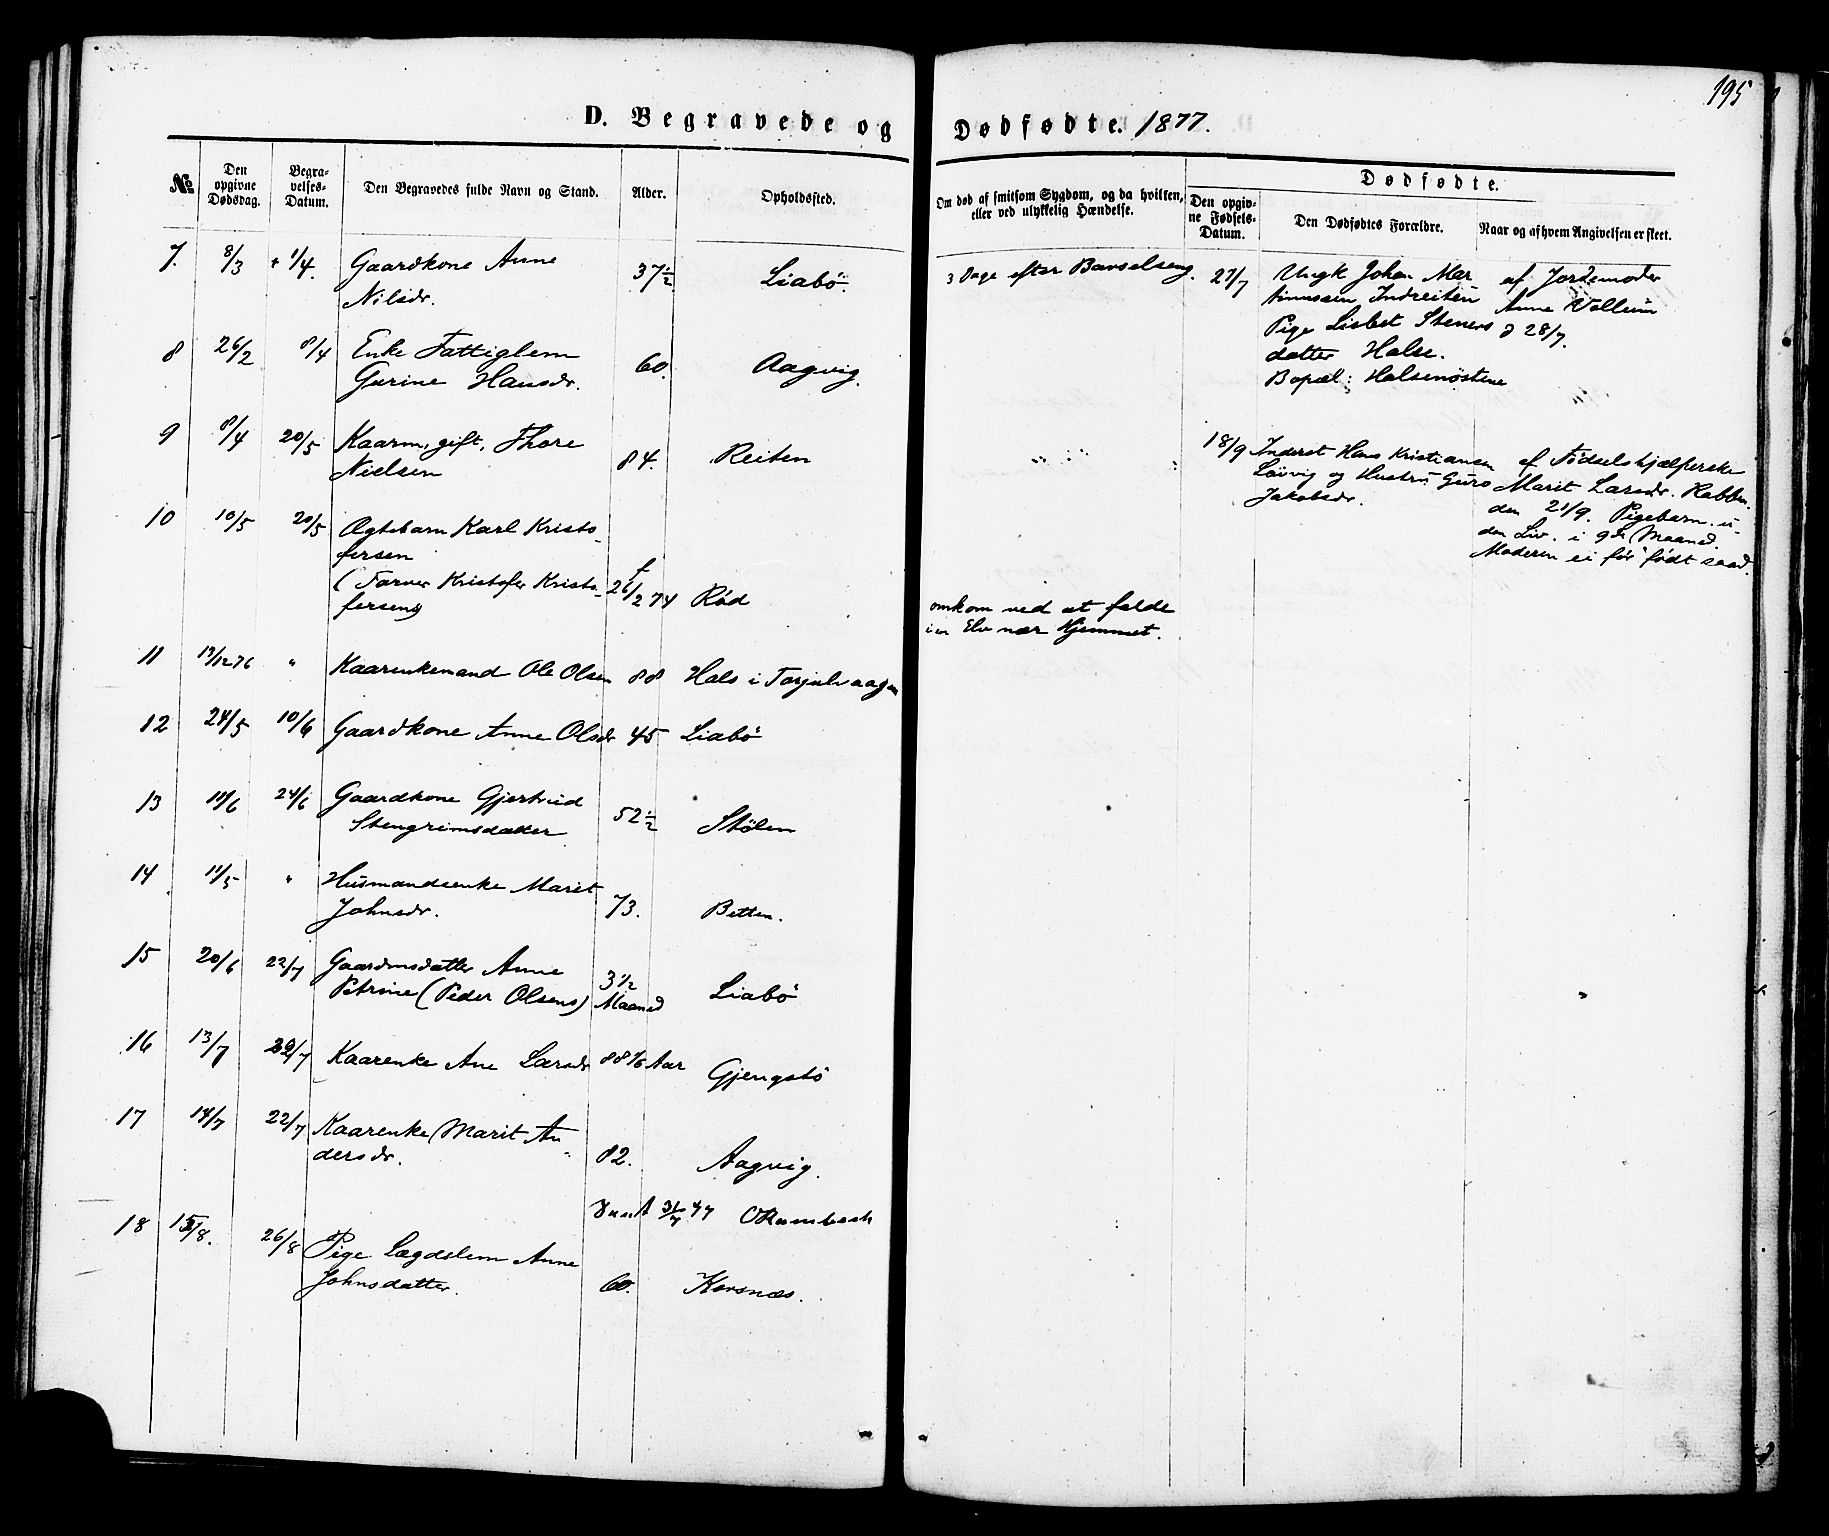 195
D. Begravede og Dødfødte. 1877.
№
Den opgivne Dødsdag.
Begravelses-Datum.
Den Begravedes fulde Navn og Stand.
Alder.
Opholdssted.
Om død af smitsom Sygdom, og da hvilken, eller ved ulykkelig Hændelse.
Dødfødte.
Den opgivne Fødsels-Datum.
Den Dødfødtes Forældre.
Naar og af hvem Angivelsen er skeet.
7. 8/3 1/4. Gaardkone Anne
Nilsdr. 37½ Liabö. 3 Dage efter Barselseng.
8 26/2 8/4 Enke Fattiglem
Gurine Hansdr. 60. Aagvig.
9 8/4 20/5 Kaarm. gift, Thore
Nielsen 84. Reiten
10 10/5 20/5 Ægtebarn Karl Kristo-
fersen
(Farver Kristofer Kristo-
fersens) f 26/2 74 Röd omkom ved at falde
i en Elv nær Hjemmet.
11 13/12 76 " Kaarenkemand Ole Olsen 88 Hals i Torjulvaagen
12 24/5 10/6 Gaardkone Anne Olsdr 45 Liabö
13 11/6 24/6 Gaardkone Gjertrud
Stengrimsdatter 52½ Stölen
14 11/5 " Husmandsenke Marit
Johnsdr. 73. Betten.
15 20/6 22/7 Gaardmsdatter Anne
Petrine (Peder Olsens) 3½
Maaned Liabö
16 13/7 29/7 Kaarenke Ane Larsdr 88 1/6 Aar Gjengstö
17 14/7 22/7 Kaarenke Marit An-
dersdr. 82. Aagvig.
31/7 77
18 15/8. 26/8 Pige Lægdslem Anne
Johnsdatter. 60. Korsnæs.
27/7 Ungk Johan Mar
tinussen Indreiten
Pige Lisbet Steners
datter Halse.
Bopæl: Halsenöstene
af Jordemoder
Anne Vollum
d 28/7.
18/9 Inderst Hans Kristiansen
Lövvig og Hustru Guro
Jakobsdr.
af Födselshjælperske
Marit Larsdr. Rabben
den 21/9. Pigebarn. u-
den Liv. i 9de Maaned.
Moderen ei før født saad.